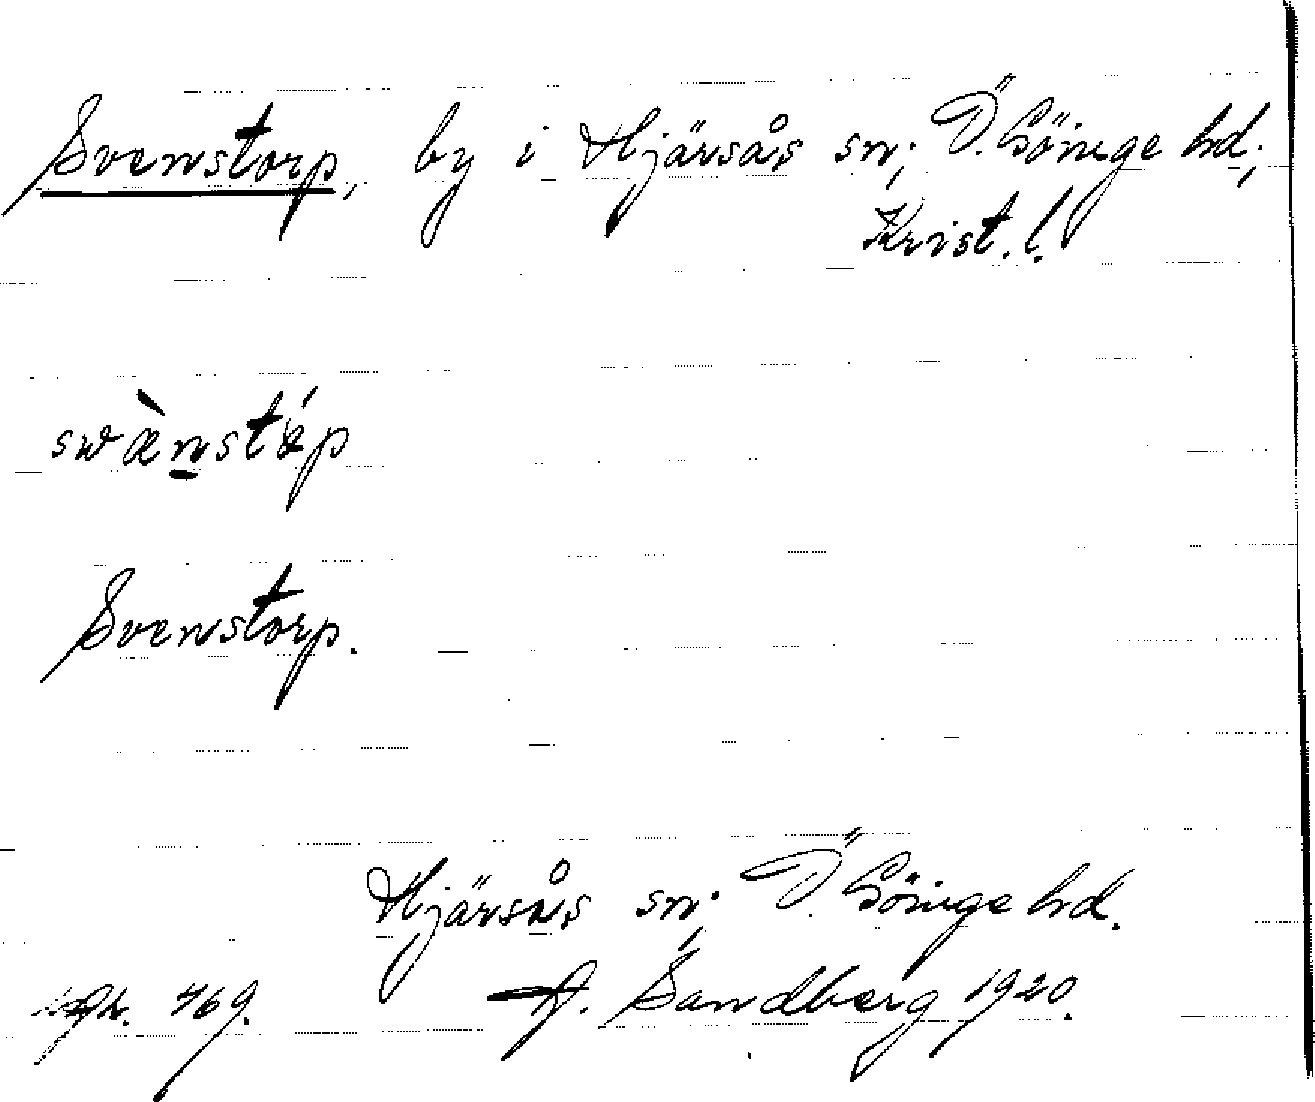 Svenstorp, by i Hjärsås sn; Ö. Göinge hd;
Krist. l.
swænstáp
Svenstorp.
Hjärsås sn; Ö. Göinge hd.
769. A. Sandberg 1920.